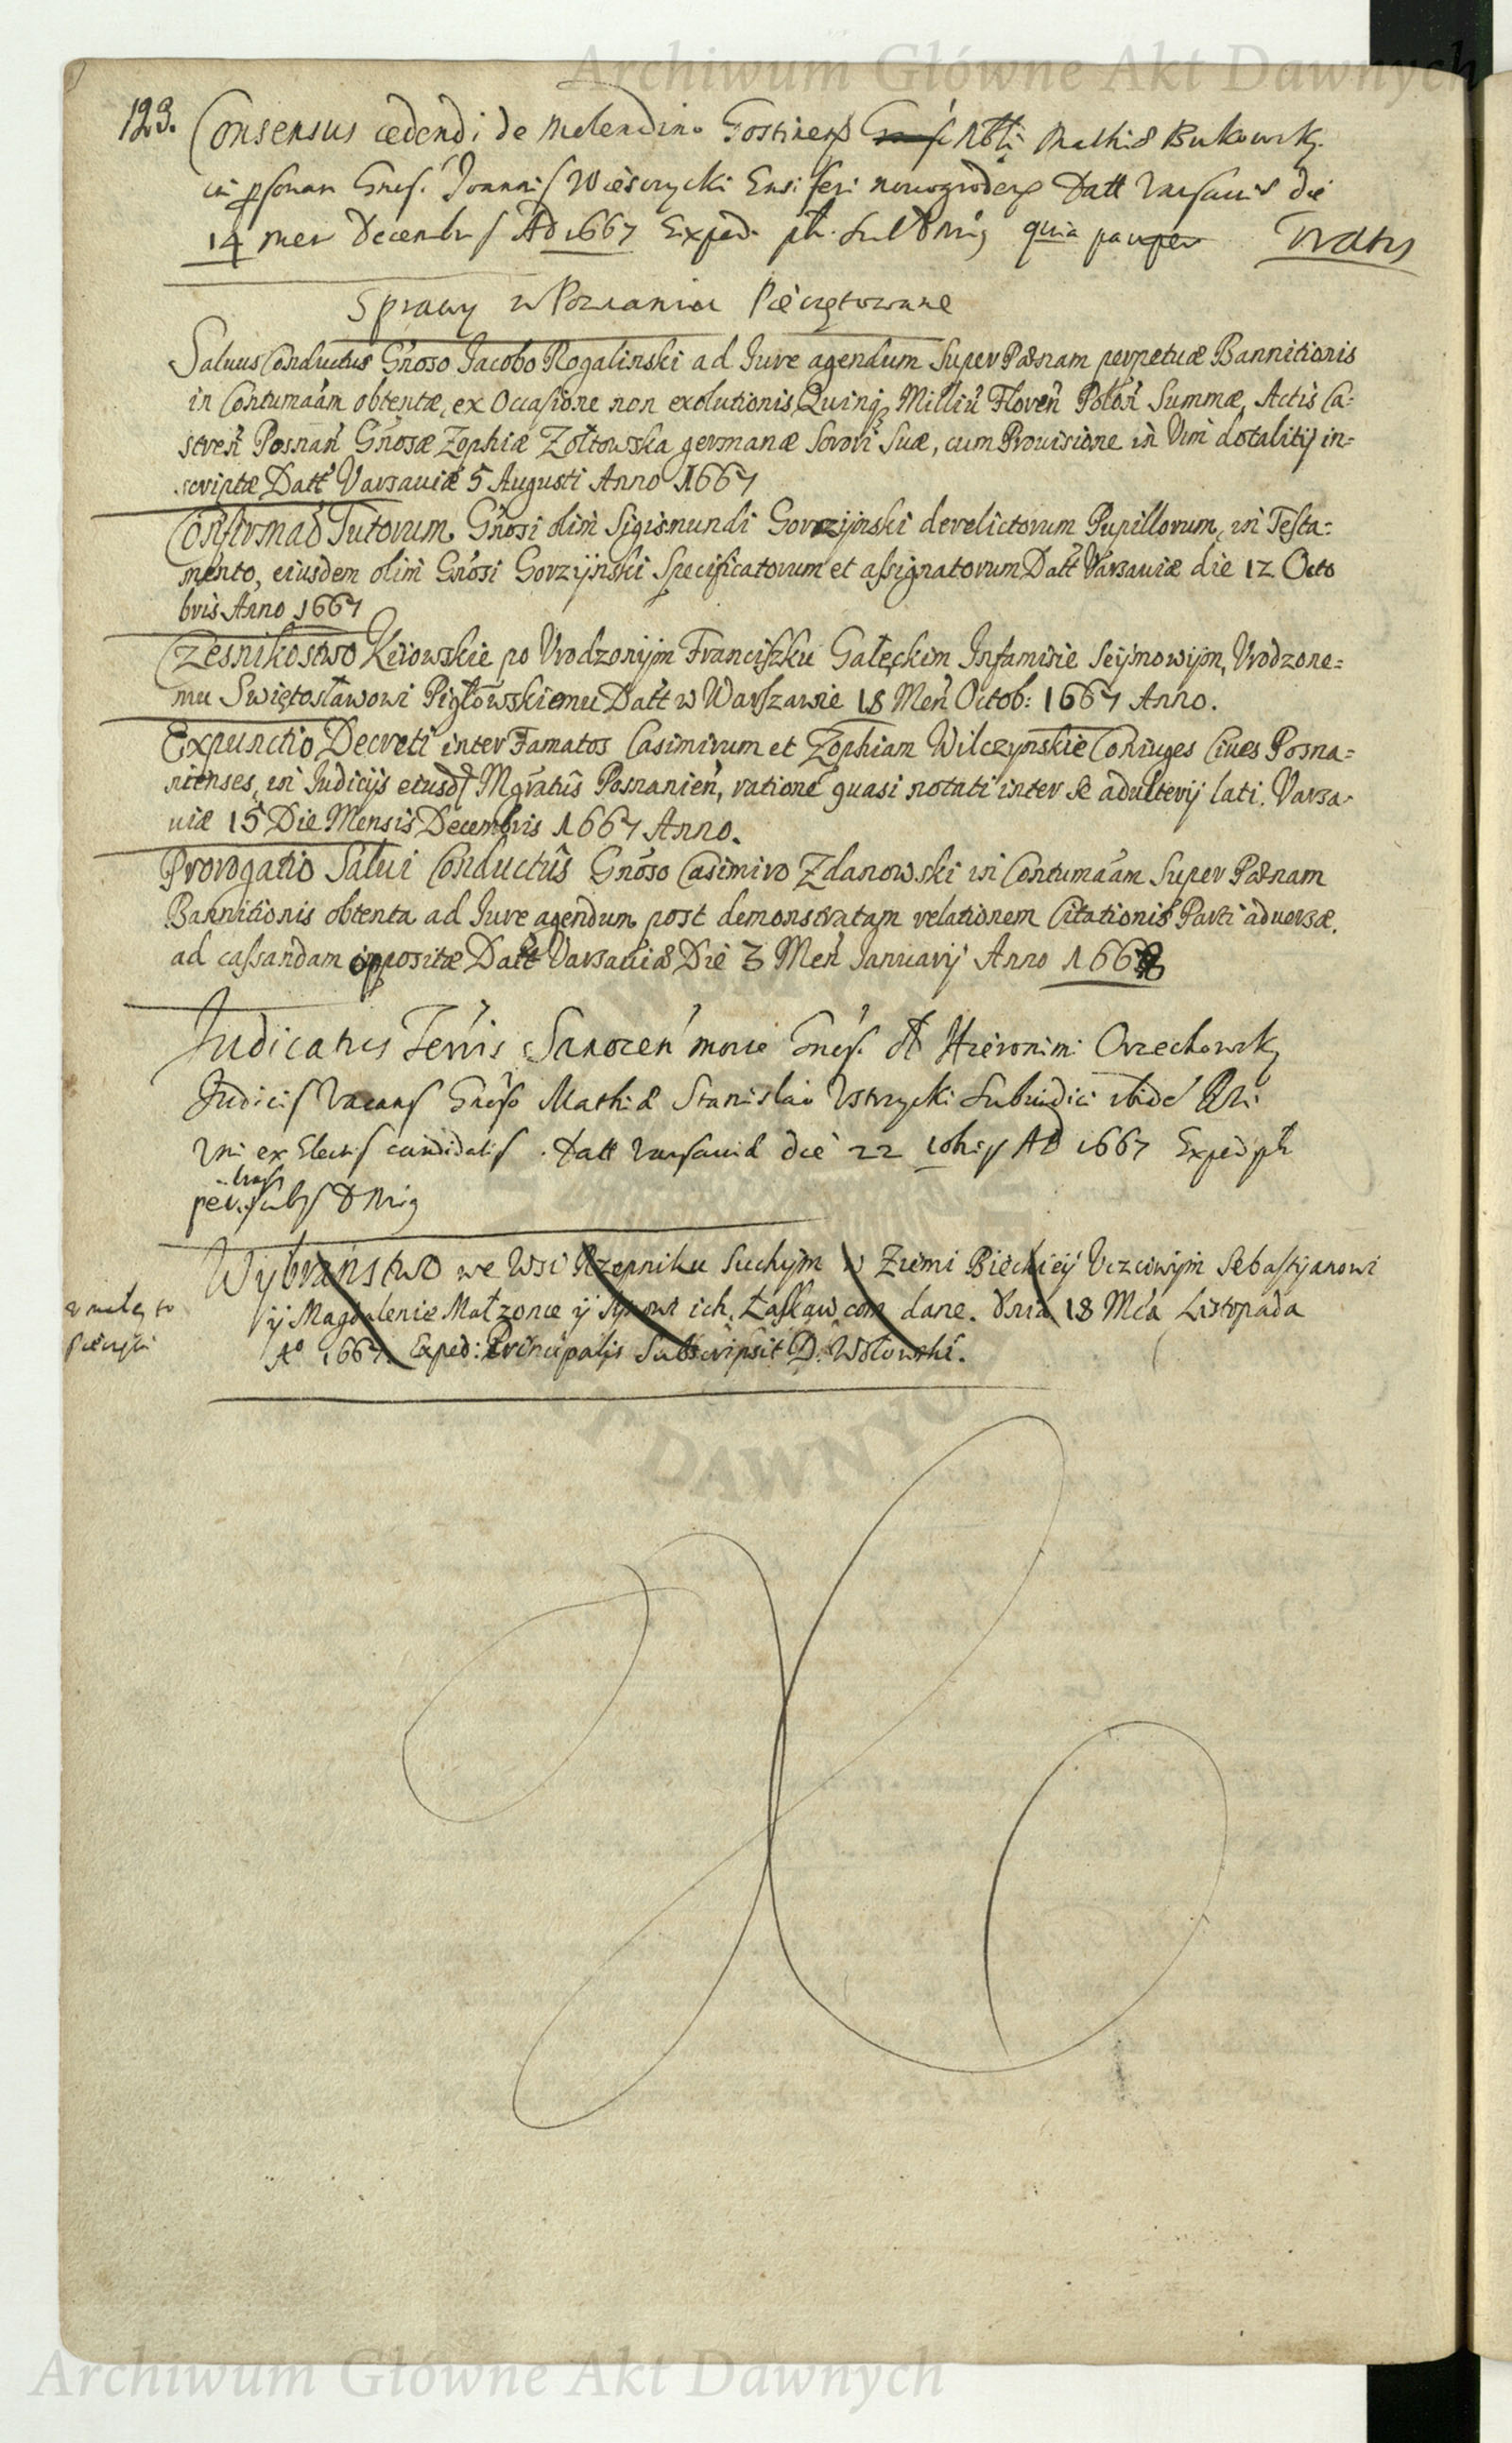 Archiwum Główne Akt Dawnych
123. Consensus cedendi de molendino Gostinens Nbli Mathiæ Bukowsky
in personam Gnesi Joannis Wieszczycki Ensiferi nowogrodens Datt Varsaviæ die
14 men Decembris AD 1667 Exped. quia pauper Gratis
Sprawy w Poznaniu Pieczętowane
Saluus Conductus Gnoso Jacobo Rogalinski ad Jure agendum super Pænam perpetuæ Bannitionis
in Contumaām obtentæ, ex Occasione non exolutionis, Quinq, Milliū Floreñ Poloñ Summæ, Actis Ca=
streñ Posnañ Gnosæ Zophiæ Zołtowska germanæ Sorori Suæ, cum Prouisione in Vim dotalitij in=
scriptæ Datt Varsauiæ 5 Augusti Anno 1667
Confirmaō Tutorum Gnosi olim Sigismundi Gorzijnski derelictorum Pupillorum, in Testa=
mento, eiusdem olim Gnosi Gorzijnski Specificatorum et assignatorum Datt Varsauiæ die 12 Octo
bris Anno 1667
Czesnikostwo Kiiowskie po Vrodzonijm Franciszku Gałęckim Infamisie Seijmowijm, Vrodzone=
mu Swiętosławowi Pigłowskiemu Datt w Warszawie 18 Meñ Octob: 1667 Anno.
Expunctio Decreti inter Famatos Casimirum et Zophiam Wilczynskie Coniuges Ciues Posna=
nienses, in Judicijs eiusd Mgratûs Posnanieñ, ratione quasi notati inter se adulterij lati. Varsa-
uiæ 15 Die Mensis Decembris 1667 Anno.
Prorogatio Salui Conductûs Gnoso Casimiro Zdanowski in Contumaām Super Pænam
Bannitionis obtenta ad Jure agendum post demonstratam relationem Citationis Parti aduersæ.
ad cassandam oppositæ Datt Varsauiæ Die 3 Meñ Januarij Anno 1668
Judicatus Terris Sanoceñ morte Gnesi Hieronimi Orzechowsky
Judicis vacans Gnoso Mathiæ Stanislao Vstrzycki Subiudici ibidē
Vni ex Electis candidatis. Datt Varsauiæ die 22 AD 1667 Exped
per subs
Wybraństwo we Wsi Rzepniku Suchym w Ziemi Bieckieij Vczciwijm Sebastyanowi
ij Magdalenie Małzonce ij Synowi ich, dane. Dnia 18 Mca Listopada
Aº 1667. Exped: Principalis Subscripsit D. Wołowski.
Archiwum Główne Akt Dawnych